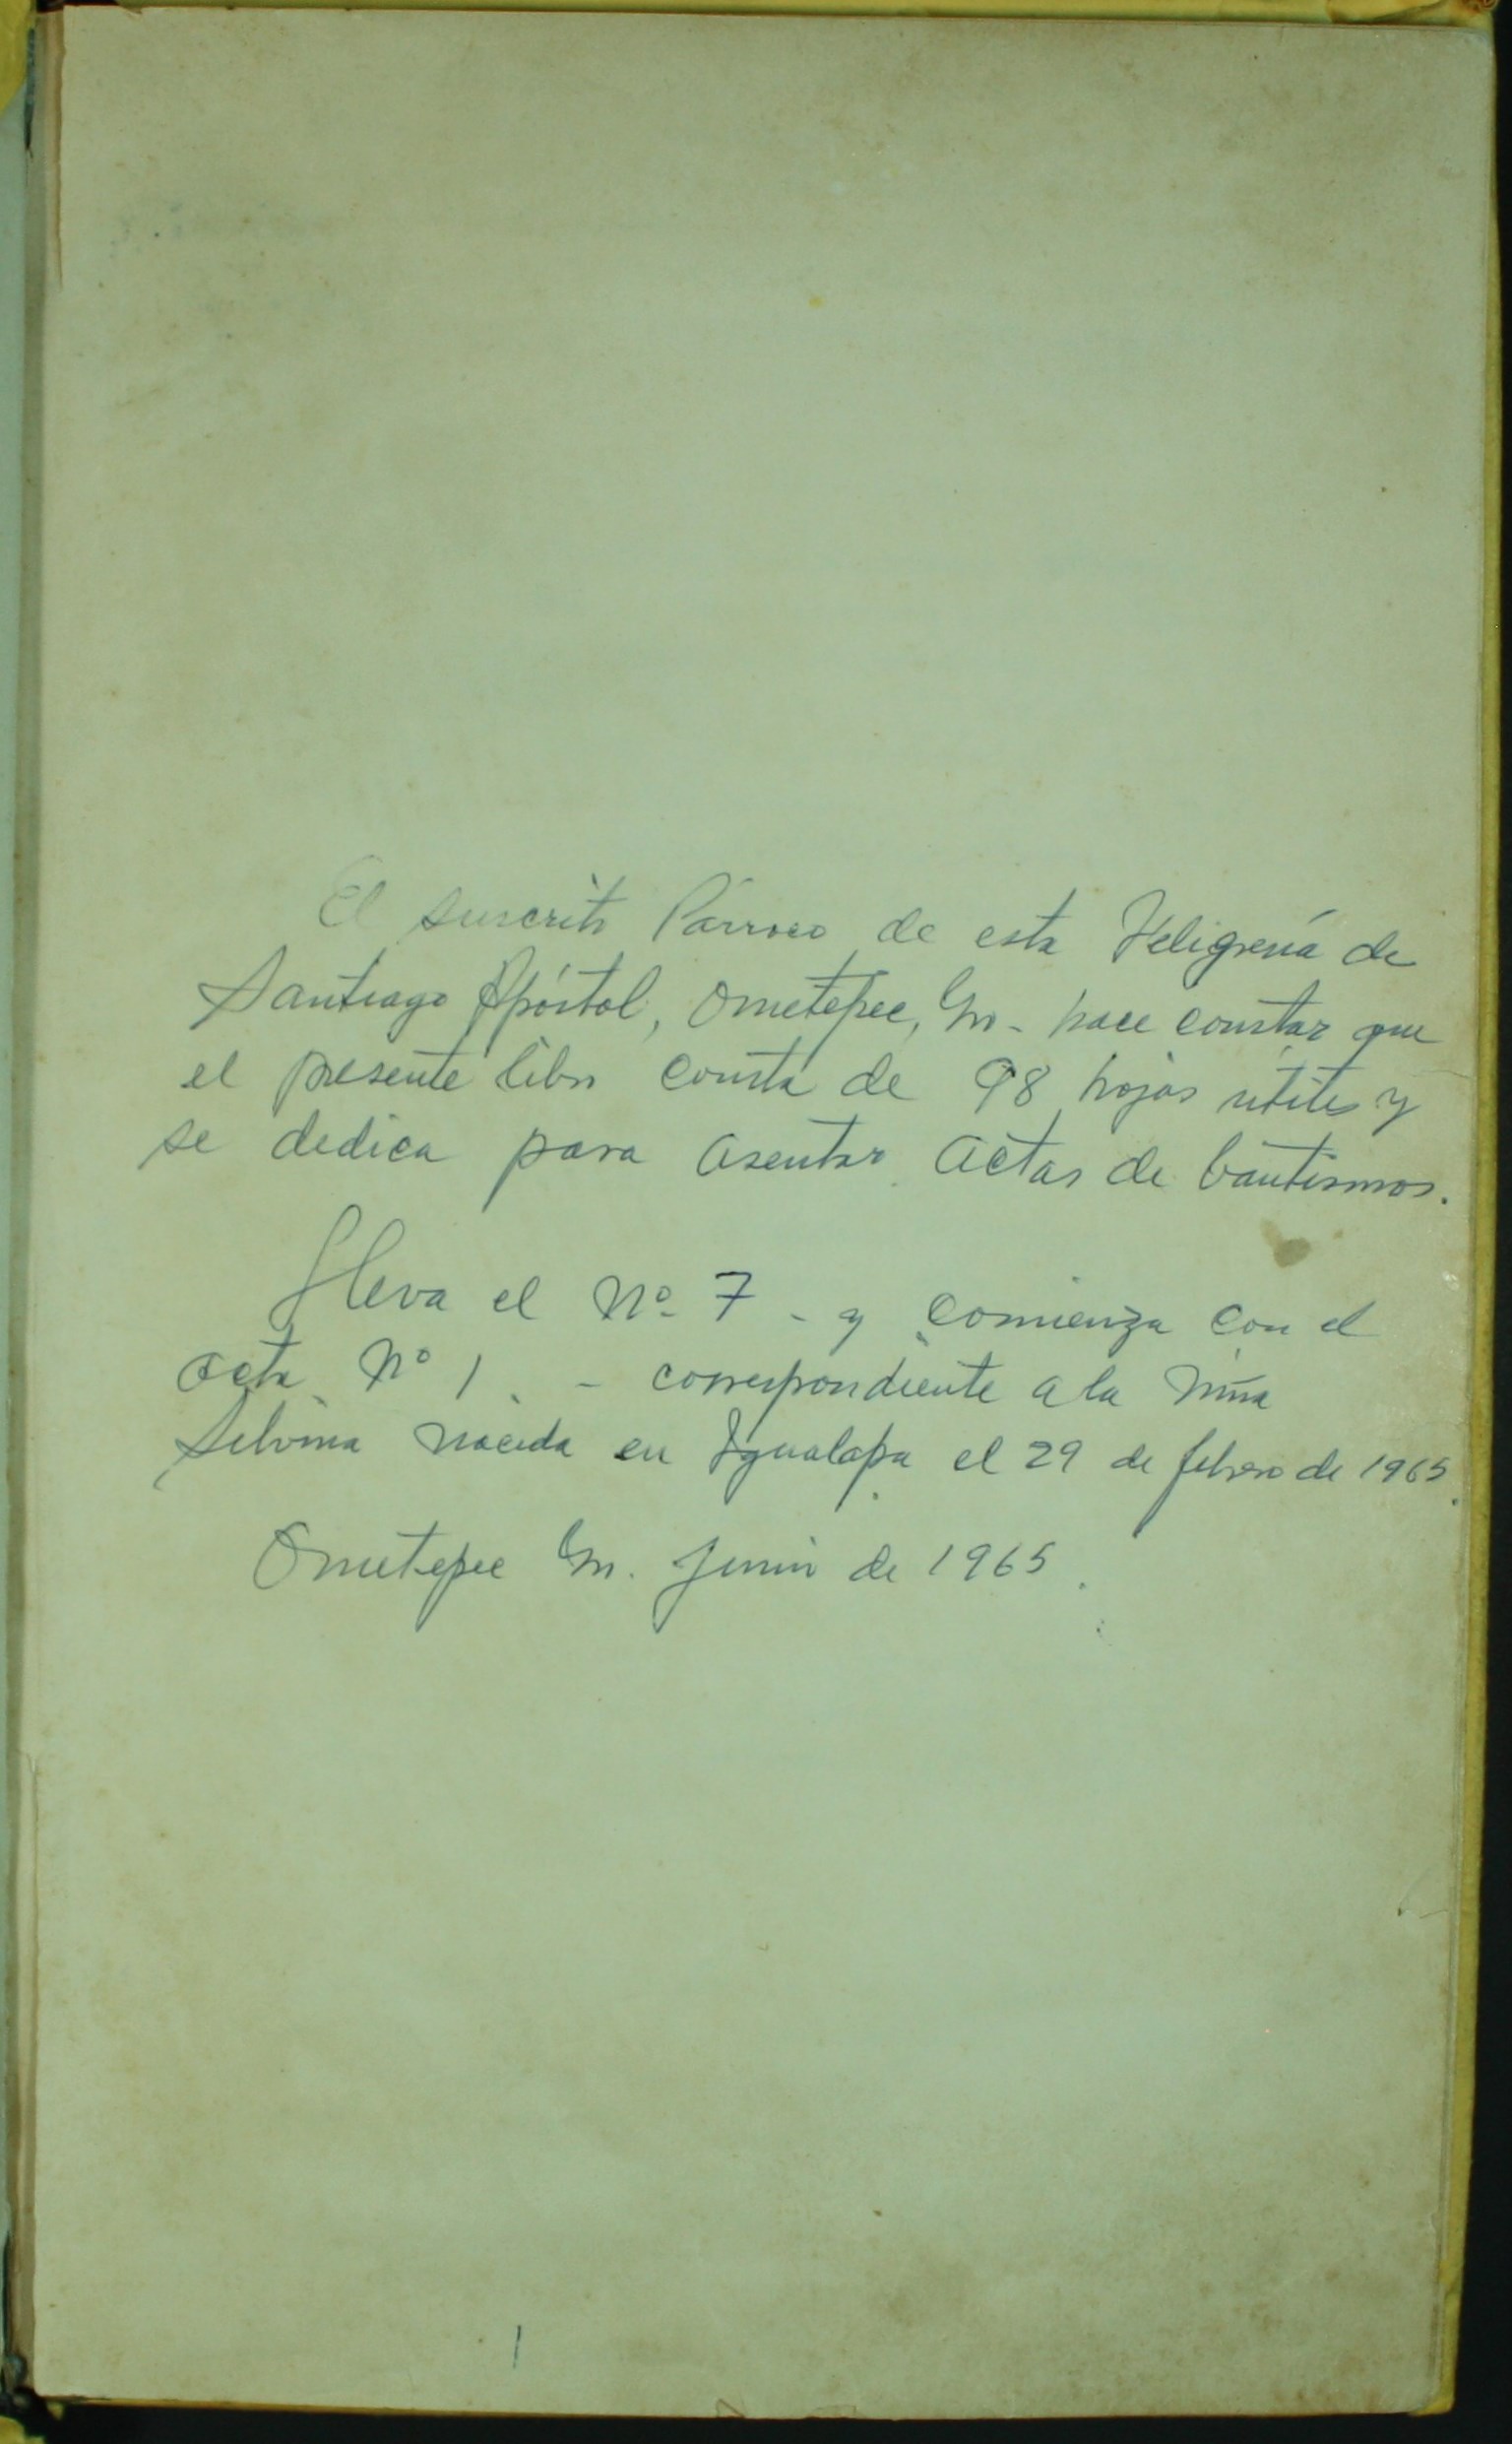 El suscrito Párroco de esta Feligresía de
Santiago Apóstol, Ometepec, Gro. hace constar que
el presente libro consta de 98 hojas utiles y
se dedica para asentar actas de bautismos.
Lleva el Nº 7 - y comienza con el
acta Nº 1. - correspondiente a la niña
Silvina nacida en Igualapa el 29 de febrero de 1965.
Ometepec Gro. Junio de 1965.
1